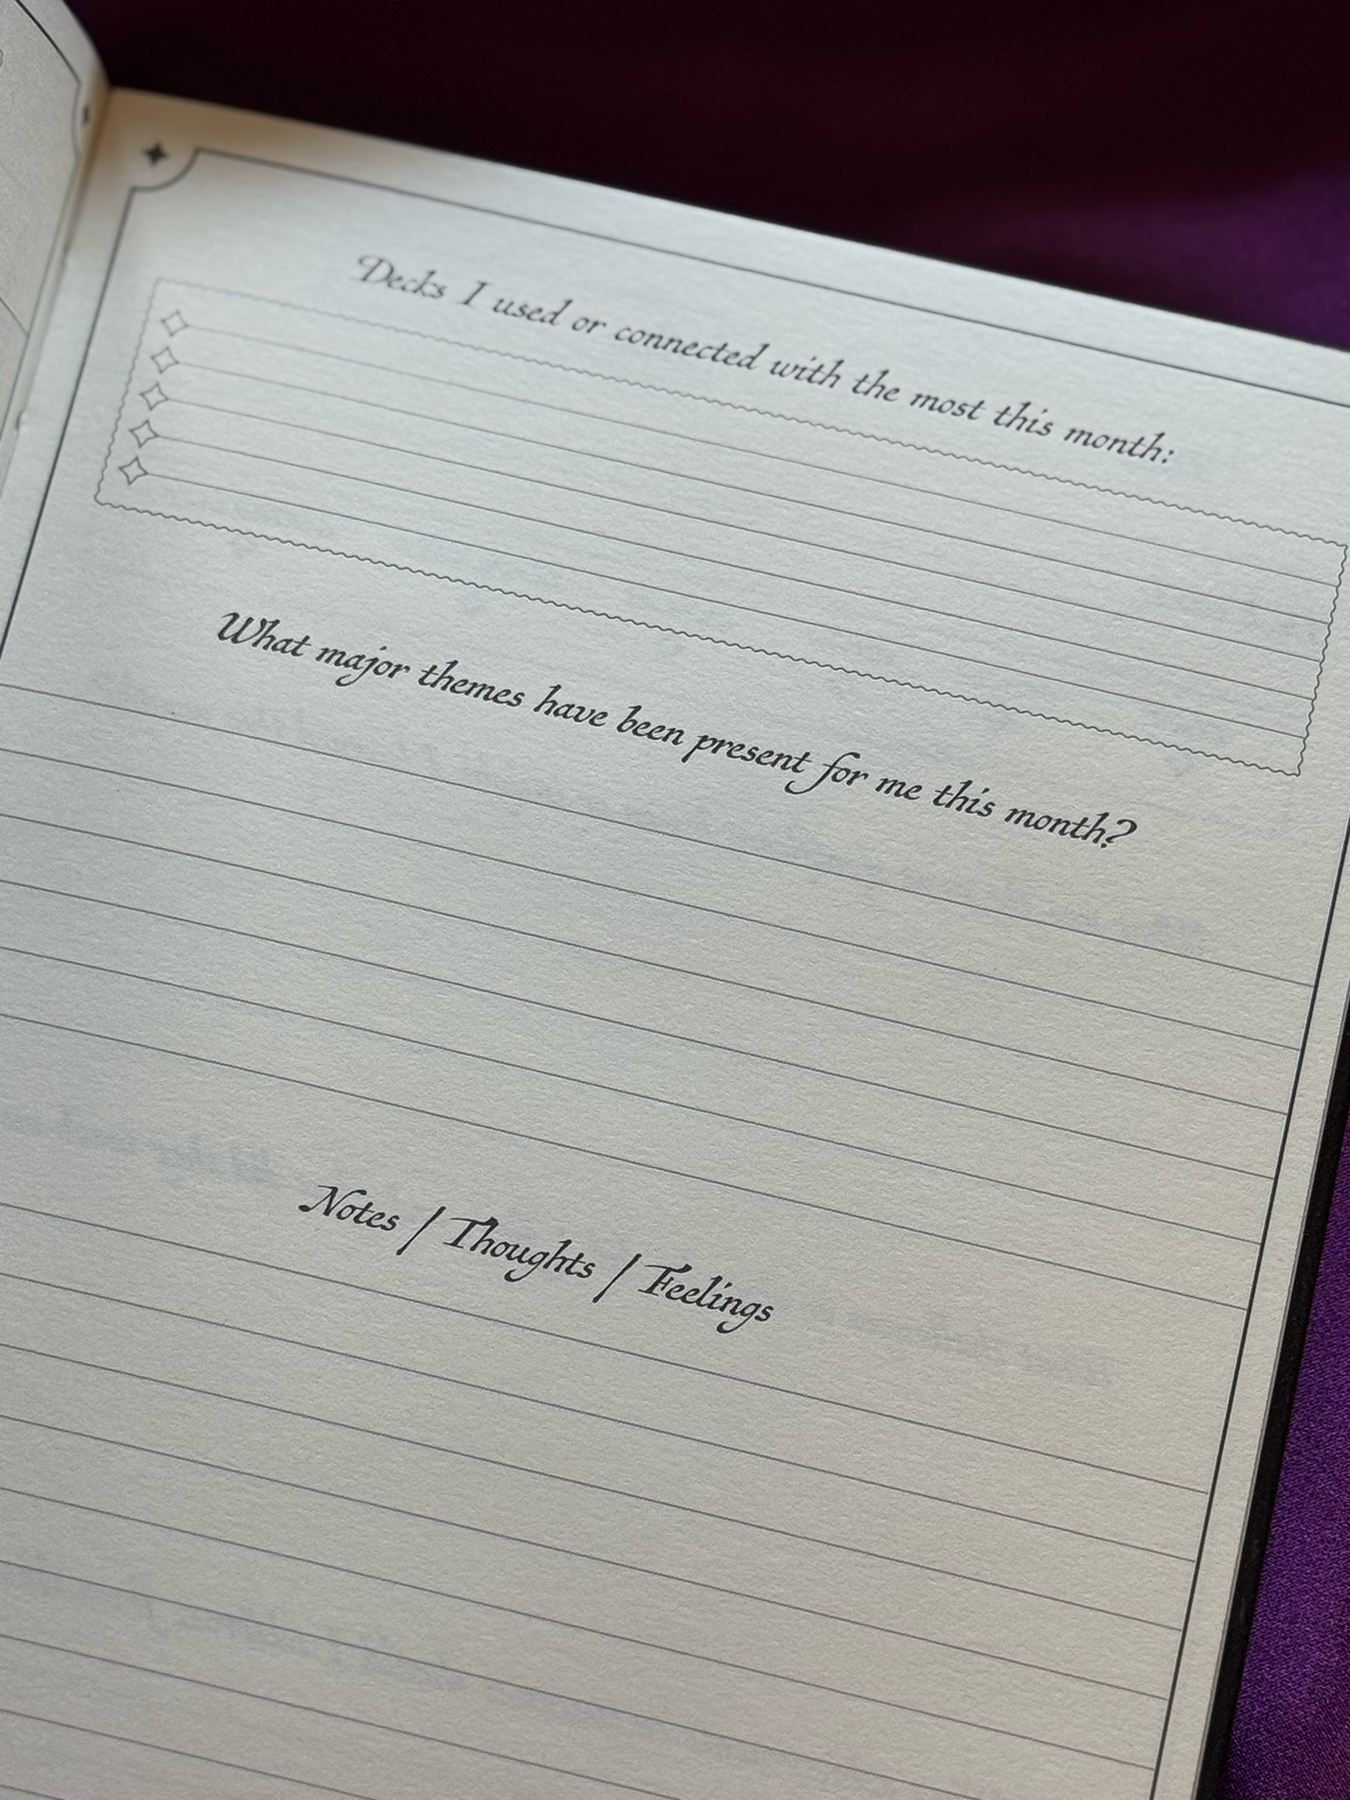 Decks I used or connected with the most this month:
What major themes have been present for me this month?
Notes / Thoughts / Feelings